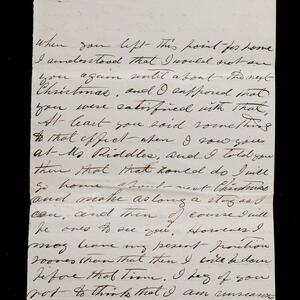 When you left this point for home
I understood that I would not see
you again until about the next
Christmas, and I supposed that
you were satisfied with that
At least you said something
to that effect when I saw you
at Mr Riddles, and I told you
then that that would do I will
go home about next Christmas
and make as long a stay as I
can, and then of course I will
be over to see you. However I
may leave my present position
sooner than that then I will be down
before that time. I beg of you
not to think that I am